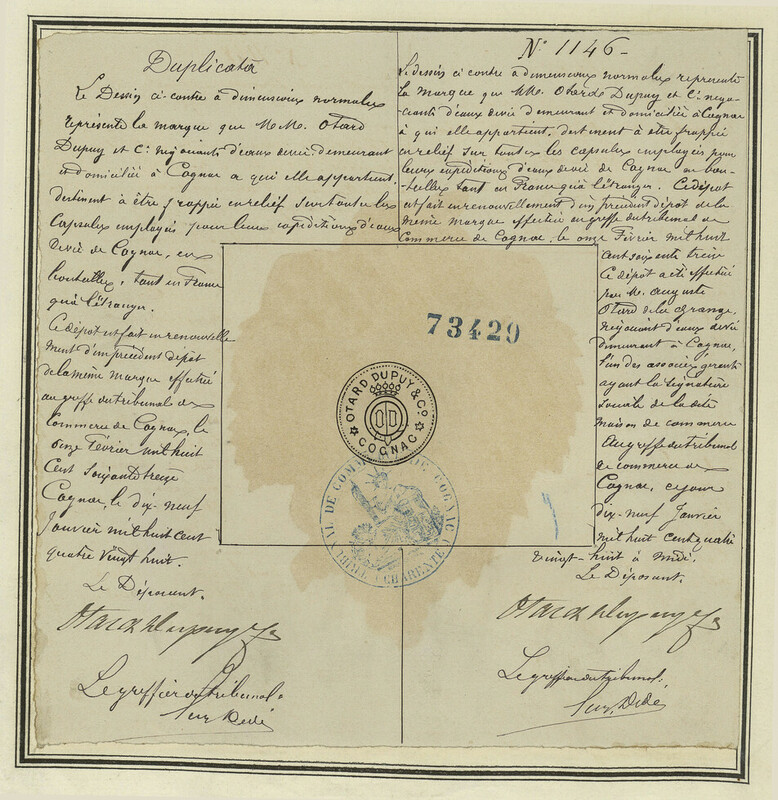 Duplicata
Le Dessin ci-contre à dimensions normales
représente la marque que M.M. Otard
Dupuy et Cie négociants d'eaux de vie demeurant
et domiciliés à Cognac a qui elle appartient,
destinent à être frappée en relief sur toutes les
capsules employées pour leurs expéditions d'eaux
de vie de Cognac, en
bouteilles, tant en France
qu'à l'étranger.
Ce dépôt est fait en renouvelle
ment d'un précédent dépôt
de la même marque effectué
au greffe du tribunal de
Commerce de Cognac, le
onze Février mil huit
cent soixante treize
Cognac, le dix-neuf
Janvier mil huit cent
quatre vingt huit.
Le Déposant.
Otard Dupuy & Co
Le greffier du tribunal
N° 1146-
Le dessin ci contre à dimensions normales représente
la marque que MM. Otard Dupuy et Cie négo-
ciants d'eaux de vie demeurant et domiciliés à Cognac
à qui elle appartient, destinent à être frappée
en relief sur toutes les capsules employées pour
leurs expéditions d'eaux de vie de Cognac en bou-
teilles tant en France qu'à l'étranger. Ce dépôt
est fait en renouvellement d'un précédent dépôt de la
même marque effectué au greffe du tribunal de
Commerce de Cognac, le onze Février mil huit
cent soixante treize
Ce dépôt a été effectué
par M. Auguste
Otard de la Grange,
négociant d'eaux de vie
demeurant à Cognac,
l'un des associés gérants
ayant la signature
sociale de la dite
maison de commerce
Au greffe du tribunal
de commerce de
Cognac, ce jour
dix-neuf Janvier
mil huit cent quatre
vingt-huit à midi.
Le Déposant.
Otard Dupuy & Co
Le greffier du tribunal,
73429
OTARD DUPUY & Co
OD
COGNAC
TRIBUNAL DE COMMERCE DE COGNAC
CHARENTE